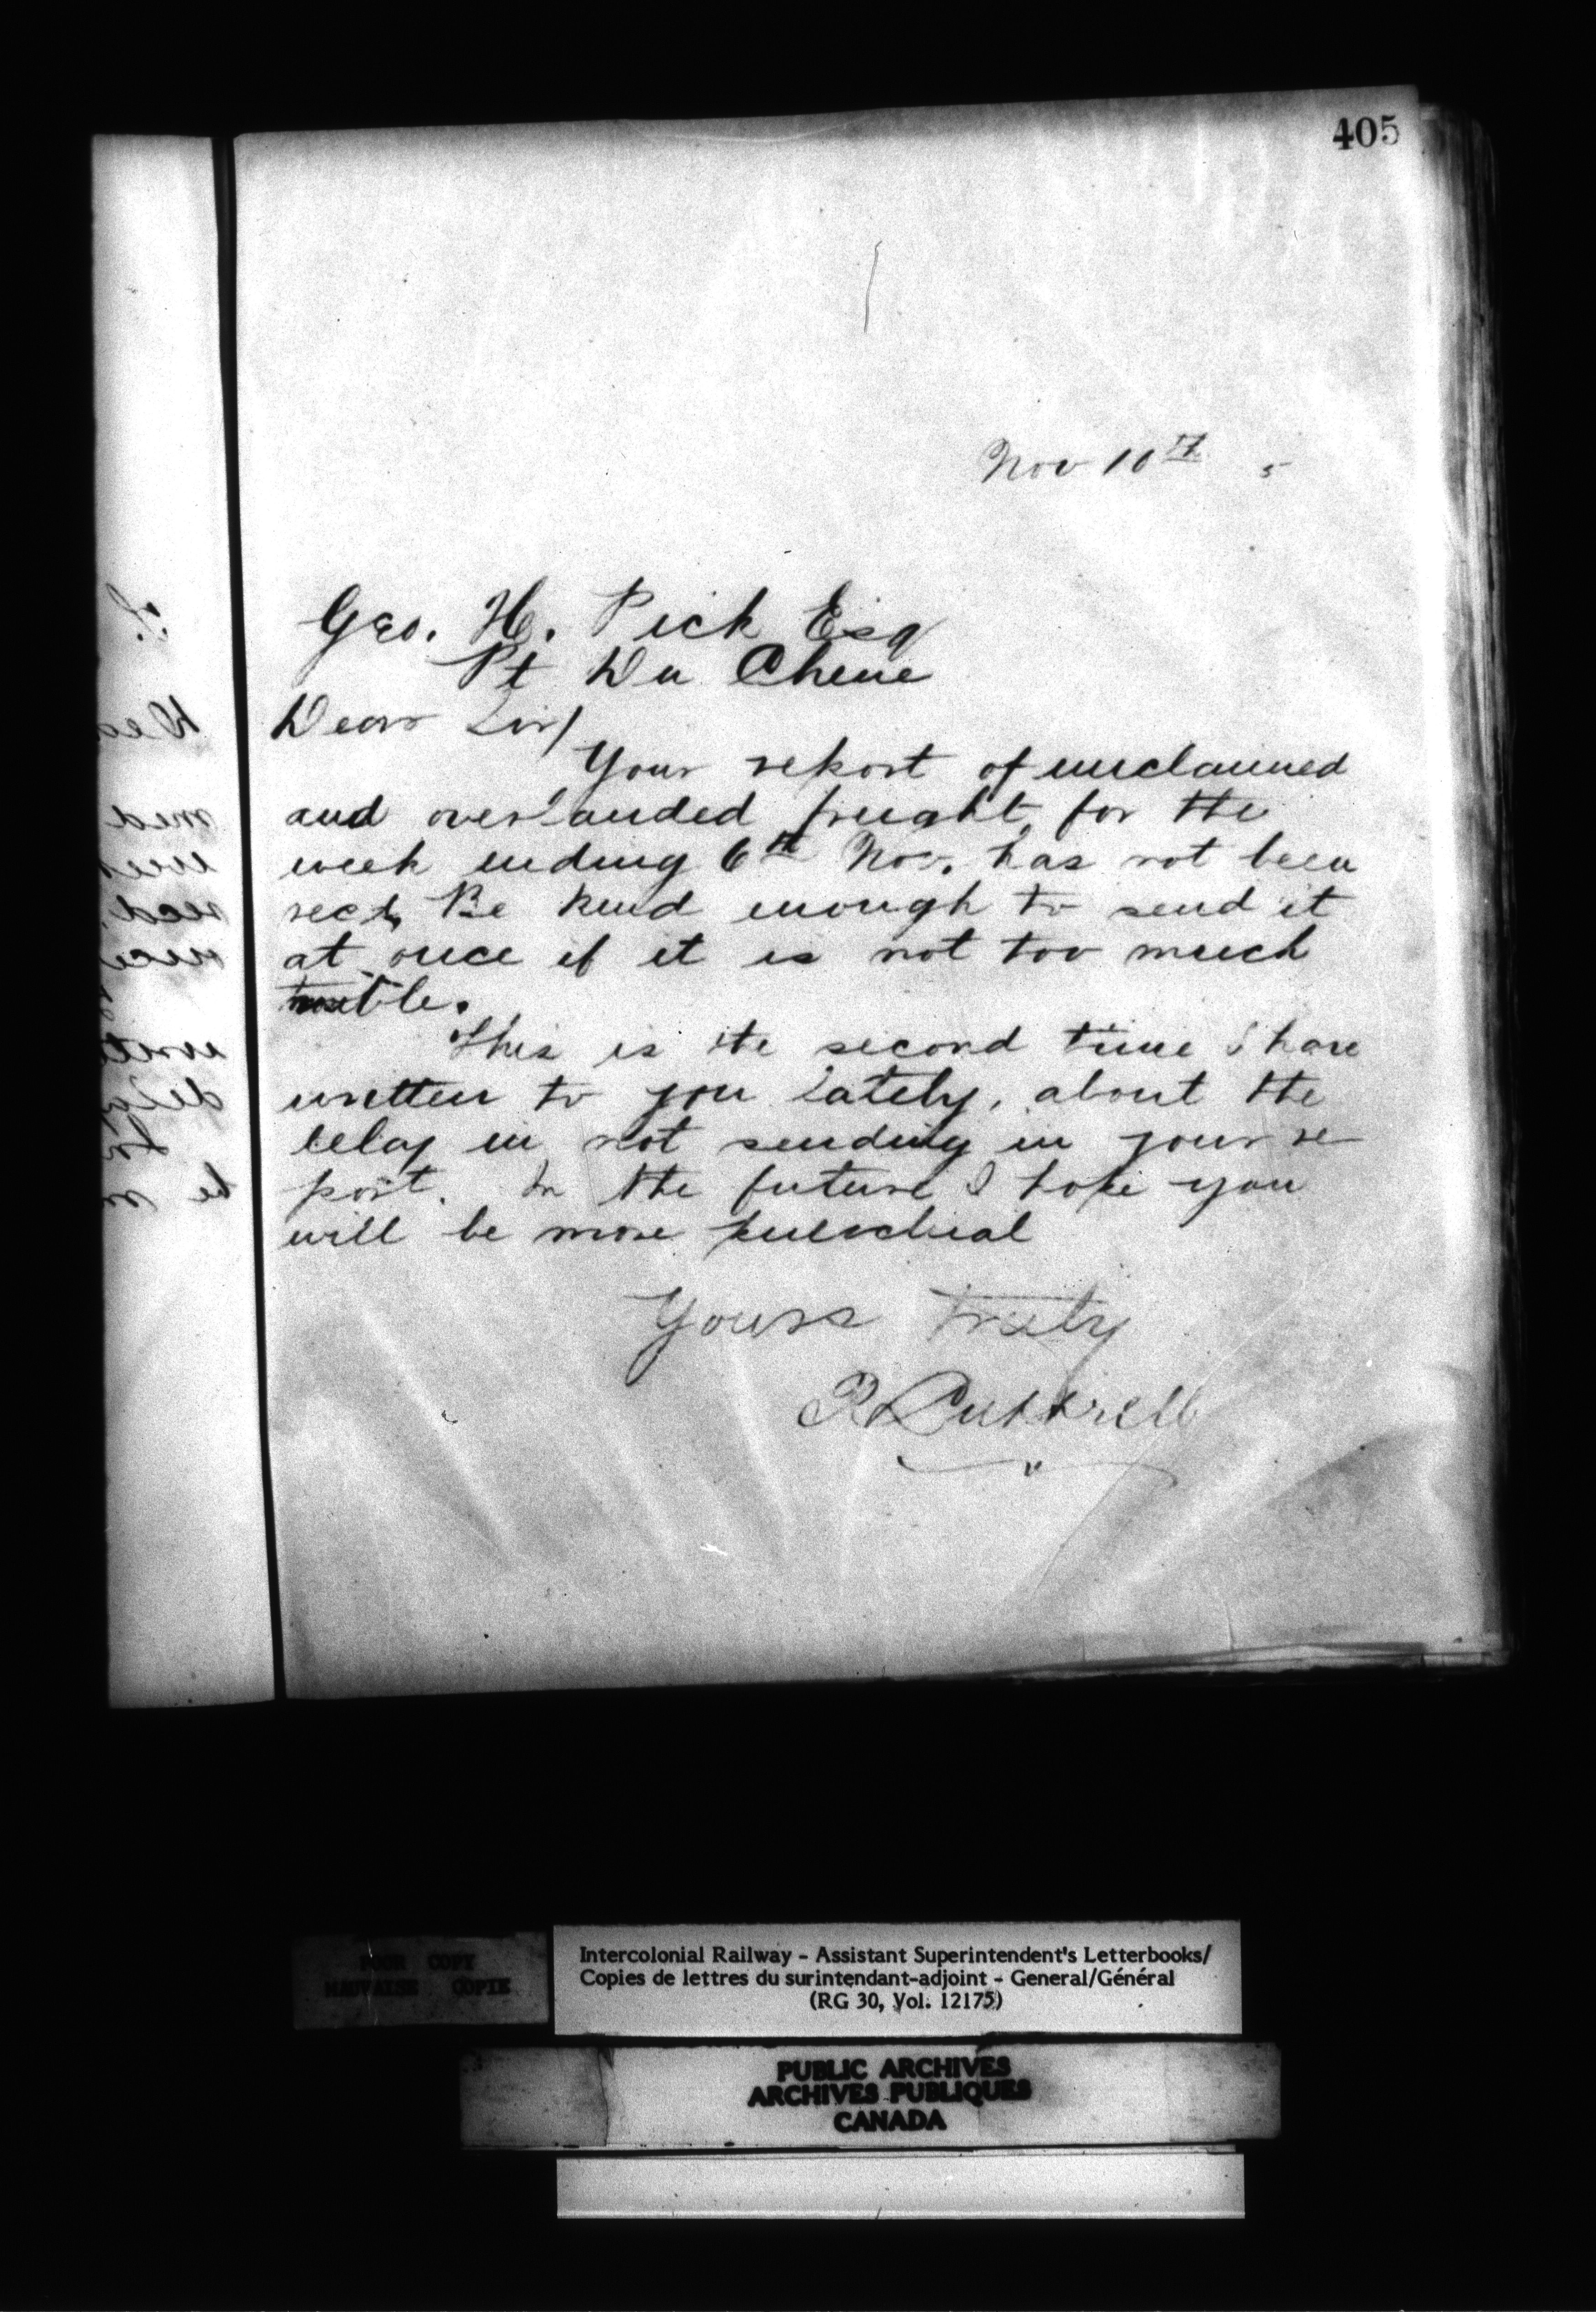 405
Nov 10th 5
Geo. H. Pick Esq
Pt Du Chene
Dear Sir/
Your report of unclaimed
and over landed freight for the
week ending 6th Nov. has not been
recd, Be kind enough to send it
at once if it is not too much
trouble.
This is the second time I have
written to you lately, about the
delay in not sending in your re
port. In the future I hope you
will be more punctual
Yours truly
POOR COPY
MAUVAISE COPIE
Intercolonial Railway - Assistant Superintendent's Letterbooks/
Copies de lettres du surintendant-adjoint - General/Général
(RG 30, Vol. 12175)
PUBLIC ARCHIVES
ARCHIVES PUBLIQUES
CANADA